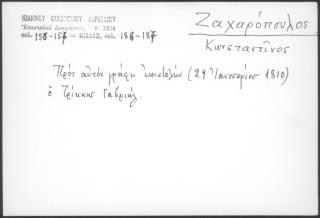 ΙΩΑΝΝΟΥ ΟΙΚΟΝΟΜΟΥ ΛΑΡΙΣΑΙΟΥ
Ἐπιστολαὶ Διαφόρων,
σελ. 156-157 = ΚΩΔΙΞ, σελ. 186-187
Ζαχαρόπουλος
Κωνσταντῖνος
Πρὸς αὐτὸν γράφει ἐπιστολὴν (29 Ἰανουαρίου 1810)
ὁ Τρίκκης Γαβριήλ.